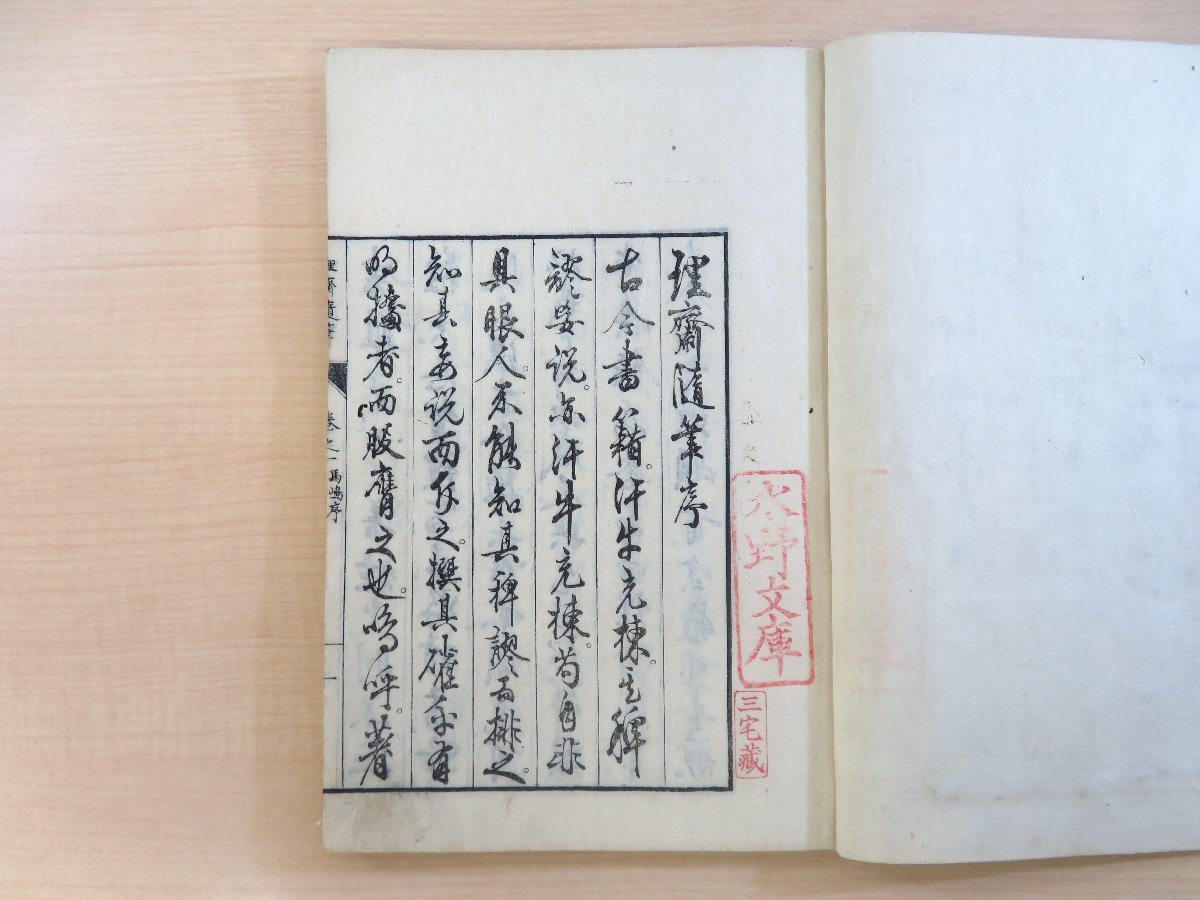 理齋隨筆序
古今書籍。汗牛充棟。其稗
謬妄説。亦汗牛充棟。苟自非
具眼人。不能知其稗謬而排之。
知其妄説而斥之。撰其確乎有
明據者。而服膺之也。嗚呼。著
理齋隨筆
卷之一 馮嶋序
一
水野文庫
三宅藏